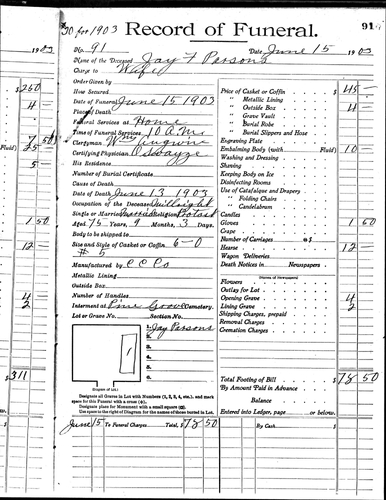 30 for 1903 Record of Funeral. 91
1903 No. 91 Date June 15 1903
Name of the Deceased Jay F Parsons
Charge to Wife
Order Given by
How Secured
Date of Funeral June 15 1903
Place of Death
Funeral Services at Home
Time of Funeral Services 10 A.M.
Clergyman Wm
Certifying Physician O Swayze
His Residence
Number of Burial Certificate
Cause of Death
Date of Death June 13 1903
Occupation of the Deceased Millright
Single or Married Married Religion Protest
Aged 75 Years, 9 Months, 3 Days.
Body to be shipped to
Size and Style of Casket or Coffin 6-0
# 5
Manufactured by C C Co
Metallic Lining
Outside Box
Number of Handles
Interment at Pine Grove Cemetery.
Lot or Grave No. Section No.
1. Jay Parsons
2.
3.
4.
5.
6.
(Diagram of Lot.)
Designate all Graves in Lot with Numbers (1, 2, 3, 4, etc.), and mark
space for this Funeral with a cross (+).
Designate place for Monument with a small square (□).
Use space to the right of Diagram for the names of those buried in Lot.
June 15 To Funeral Charges Total, $ 78 50
Price of Casket or Coffin $ 45 -
" Metallic Lining
" Outside Box 4
" Grave Vault
" Burial Robe
" Burial Slippers and Hose
Engraving Plate
Embalming Body (with Fluid) 10 -
Washing and Dressing
Shaving
Keeping Body on Ice
Disinfecting Rooms
Use of Catafalque and Drapery
" Folding Chairs
" Candelabrum
Candles
Gloves 1 50
Crape
Number of Carriages @ $
Hearse 12 -
Wagon Deliveries
Death Notices in Newspapers
(Names of Newspapers)
Flowers
Outlay for Lot
Opening Grave 4
Lining Grave 2
Shipping Charges, prepaid
Removal Charges
Cremation Charges
Total Footing of Bill $ 78 50
By Amount Paid in Advance
Balance
Entered into Ledger, page or below.
By Cash $
$ 250
4 -
7 50
Fluid) 25
5
1 50
12 -
4
2
$ 311